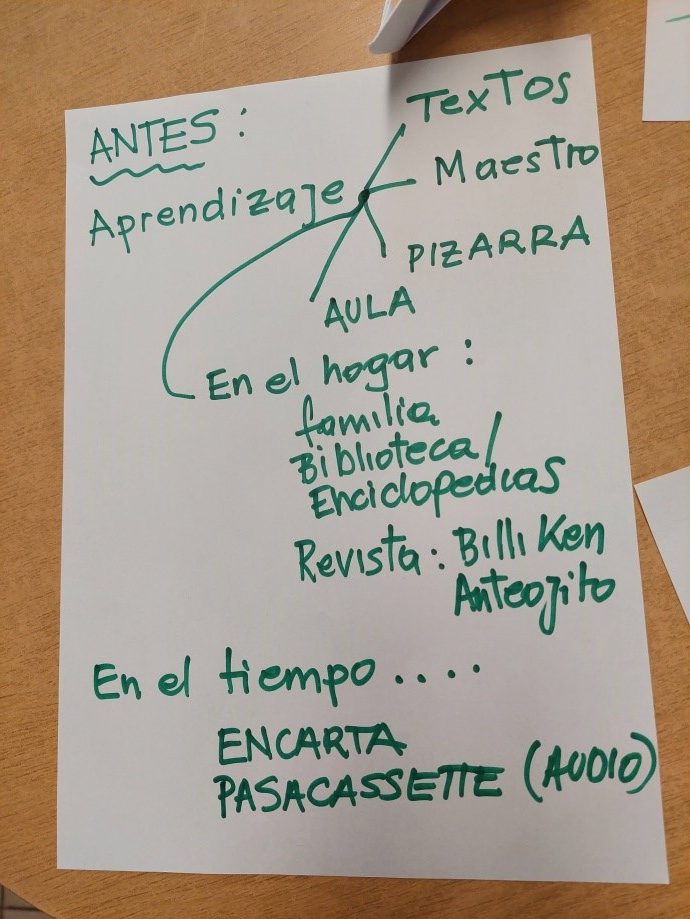 ANTES :
Aprendizaje
Textos
Maestro
PIZARRA
AULA
En el hogar :
familia
Biblioteca/
Enciclopedias
Revista : Billi Ken
Anteojito
En el tiempo ....
ENCARTA
PASACASSETTE (AUDIO)